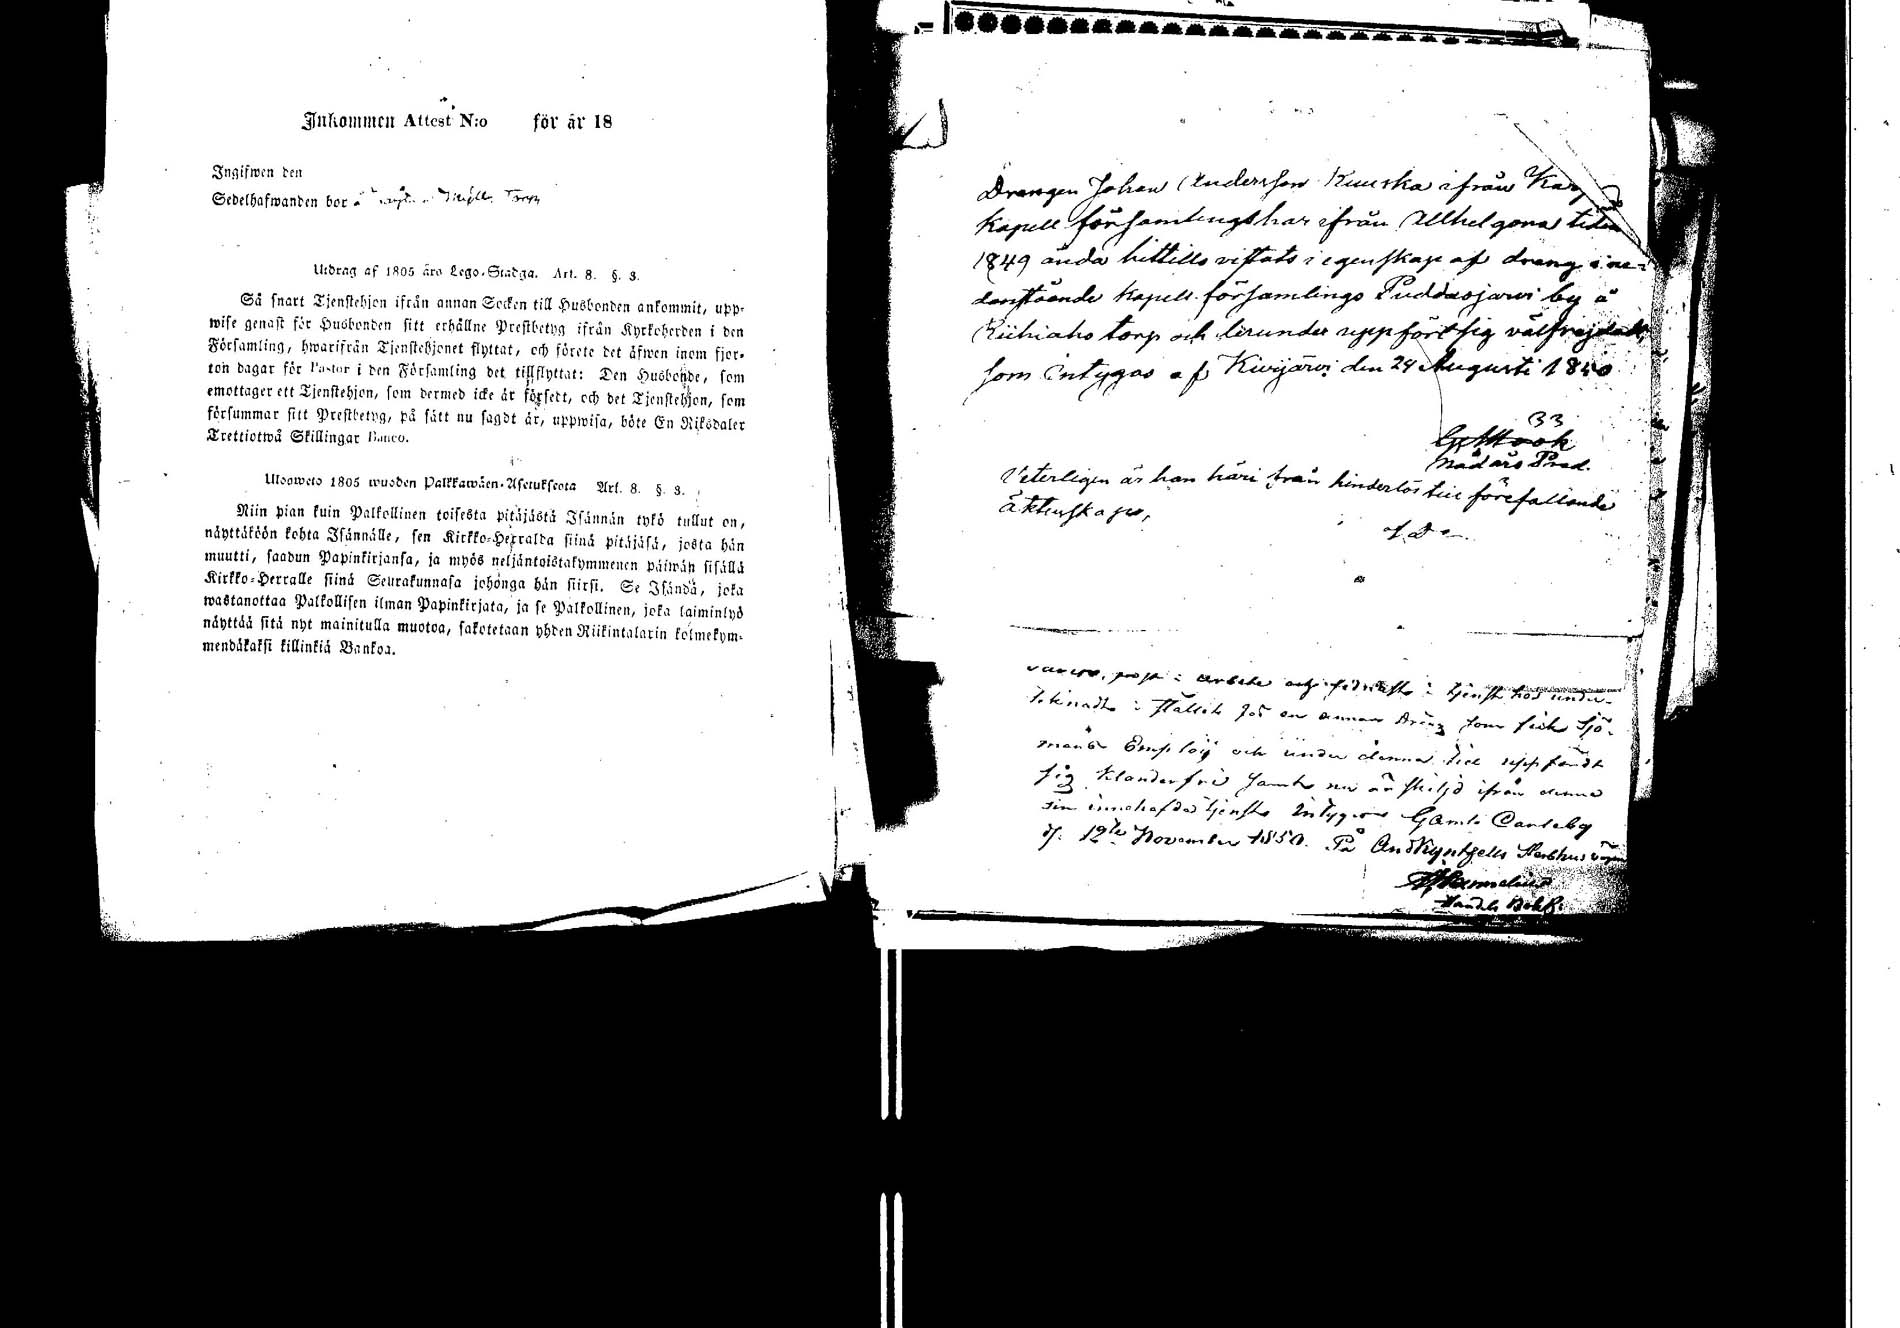 Inkommen Attest N:o för år 18
Ingifwen den
Sedelhafwanden bor å Torp
Utdrag af 1805 års Lego-Stadga. Art. 8. §. 3.
Så snart Tjenstehjon ifrån annan Socken till Husbonden ankommit, upp-
wise genast för Husbonden sitt erhållne Prestbetyg ifrån Kyrkoherden i den
Församling, hwarifrån Tjenstehjonet flyttat, och förete det äfwen inom fjor-
ton dagar för Pastor i den Församling det tillflyttat: Den Husbonde, som
emottager ett Tjenstehjon, som dermed icke är försedt, och det Tjenstehjon, som
försummar sitt Prestbetyg, på sätt nu sagdt är, uppwisa, böte En Riksdaler
Trettiotwå Skillingar Banco.
Uloswето 1805 wuoden Palkkawäen-Asetuksesta Art. 8. §. 3.
Niin pian kuin Palkollinen toisesta pitäjästä Isännän tykö tullut on,
näyttäköön kohta Isännälle, sen Kirkko-Herralda siinä pitäjäsä, josta hän
muutti, saadun Papinkirjansa, ja myös neljäntoistakymmenen päiwän sisällä
Kirkko-Herralle siinä Seurakunnasa johonga hän siirsi. Se Isändä, joka
wastanottaa Palkollisen ilman Papinkirjata, ja se Palkollinen, joka laiminlyö
näyttää sitä nyt mainitulla muotoa, sakotetaan yhden Riikintalarin kolmekym-
mendäkaksi killinkiä Bankoa.
Drengen Johan Andersson Kuuska ifrån
Kapell församlings har ifrån Allhelgona tiden
1849 ända hittills vistats i egenskap af dräng i ne-
danstående Kapell församlings Puddasjärwi by å
Kiihiaho torp och derunder uppfört sig välfrejdadt,
som intygas af Kiwijärwi den 24 Augusti 1850
33
Nådårs Pred.
Veterligen är han häri från hinderlös till förefallande
äktenskap,
arbete och i tjenst hos under-
teknade i stället för en annan dräng som fick Sjö-
mans Employ och under denna tid uppfördt
sig klanderfri samt nu är skiljd ifrån denna
sin innehafda tjenst intygar Gamla Carleby
d. 12te November 1850. På And Kyntzells Sterbhus vägnar
Handls Bokh.